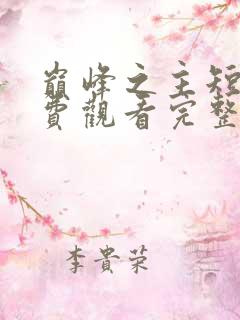 巔峰之主短
費觀看完整
李貴榮